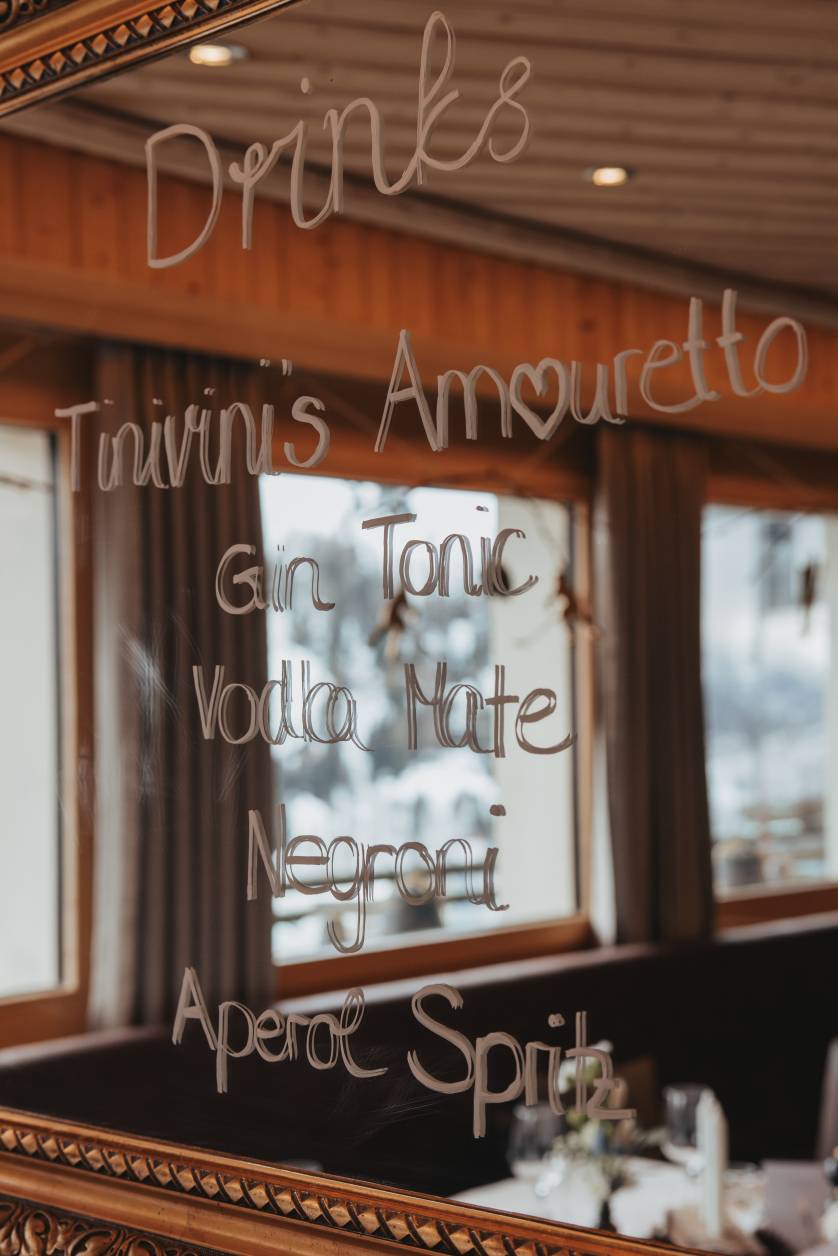 Drinks
Tinivini's Am♡uretto
Gin Tonic
Vodka Mate
Negroni
Aperol Spritz